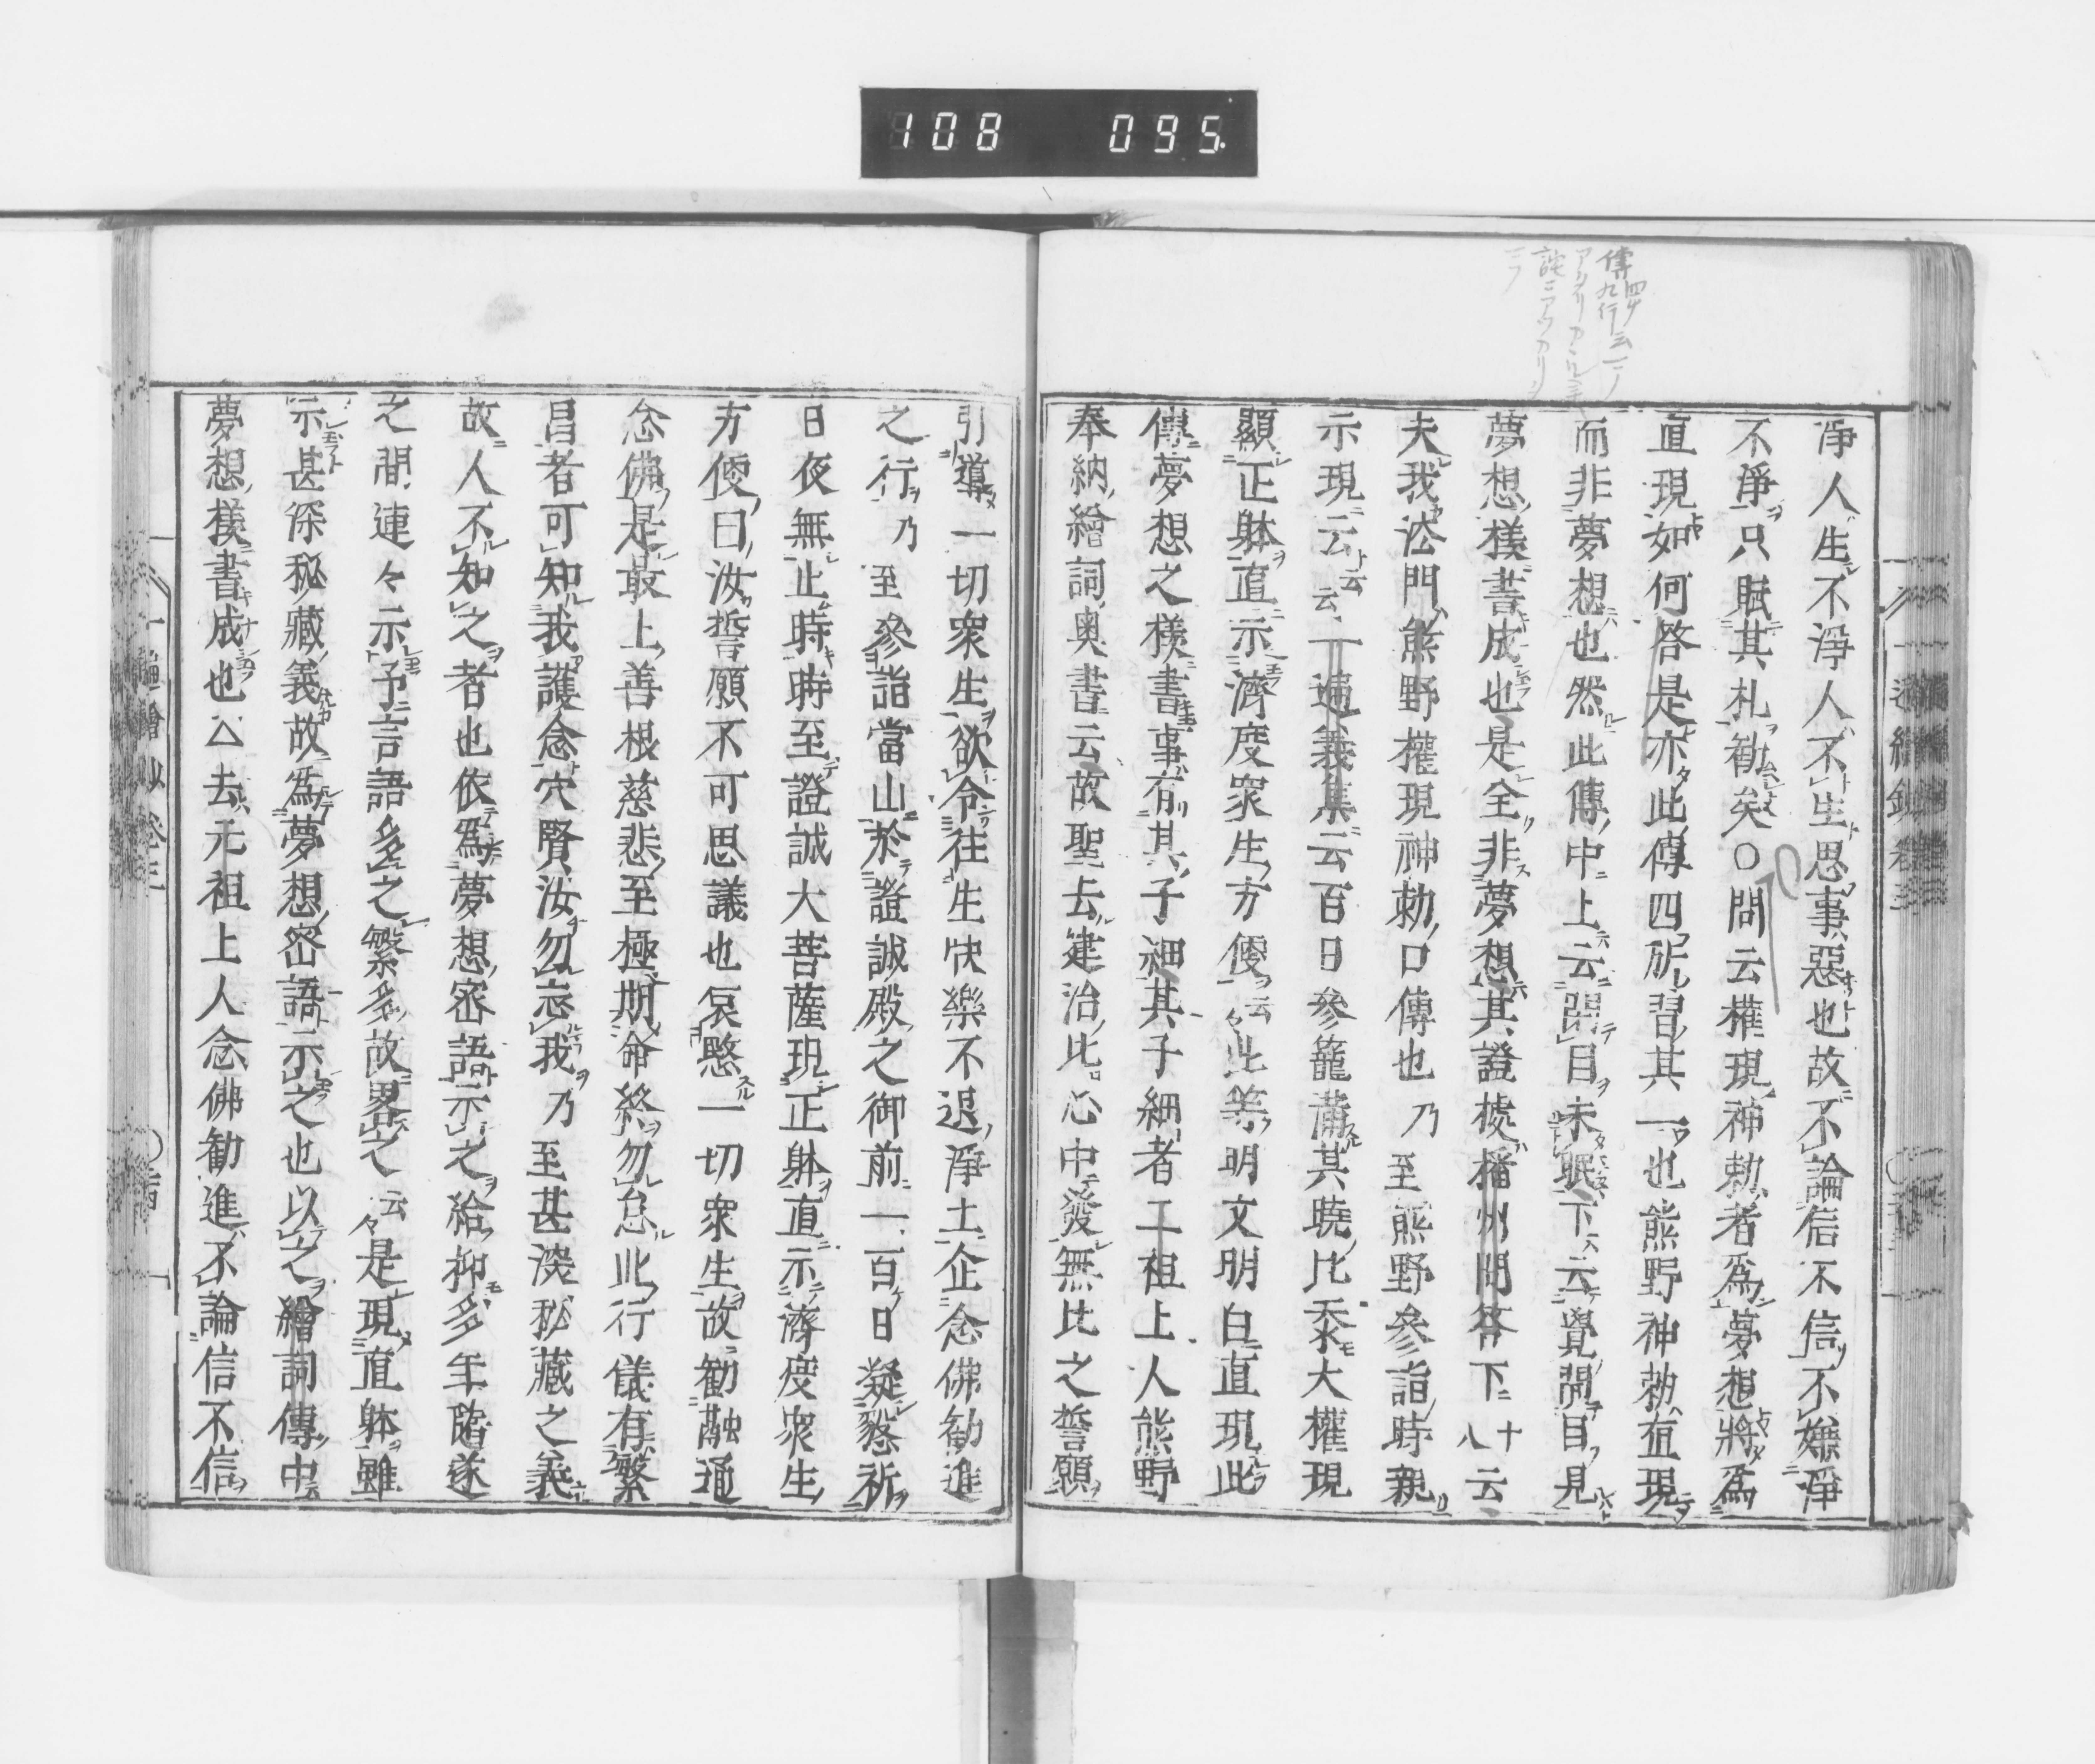 108 095
傳四ウ九行云一ノ
淨人生不淨人不生思事惡也故不論信不信不嫌淨
不淨只賦其札勸矣〇問云權現神勅者爲夢想將爲
直現如何答是亦此傳四所習其一也熊野神勅直現
而非夢想也然此傳中上云閉目未眠下云覺開目見
夢想樣書成也是全非夢想其證據播州問答下十八云
夫我法門熊野權現神勅口傳也乃至熊野參詣時親
示現云云一遍義集云百日參籠滿其曉比忝大權現
顯正躰直示濟度衆生方便云々此等明文明白直現此
傳夢想之樣書事有其子細其子細者工祖上人熊野
奉納繪詞奥書云故聖去建治比心中發無比之誓願
引導一切衆生欲令往生快樂不退淨土企念佛勧進
之行乃至參詣當山於證誠殿之御前一百日凝懇祈
日夜無止時時至證誠大菩薩現正躰直示濟度衆生
方便曰汝誓願不可思議也哀愍一切衆生故勧融通
念佛是最上善根慈悲至極期命終勿怠此行儀有繁
昌者可知我護念穴賢汝勿忘我乃至甚深秘藏之義
故人不知之者也依爲夢想密語示之給抑多年隨逐
之間連々示予言語多之繁多故畧之云々是現直躰雖
示甚深秘藏義故爲夢想密語示之也以之繪詞傳中
夢想樣書成也厶去元祖上人念佛勧進不論信不信